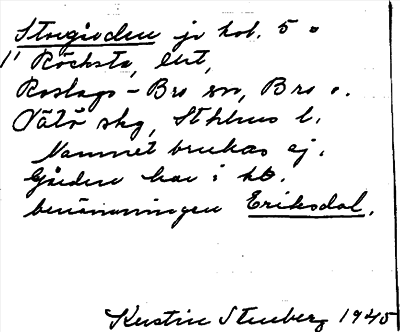 Storgården jr kol. 5 o
1' Röcksta, ent,
Roslags-Bro sn, Bro o.
Väddö skg, Sthlms l.
Namnet brukas ej.
Gården har i kb.
benämningen Eriksdal.
Kerstin Stenberg 1945